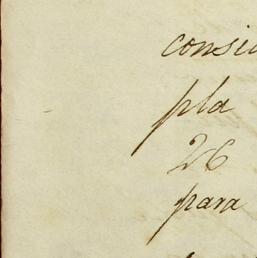 consi
pla
26
para